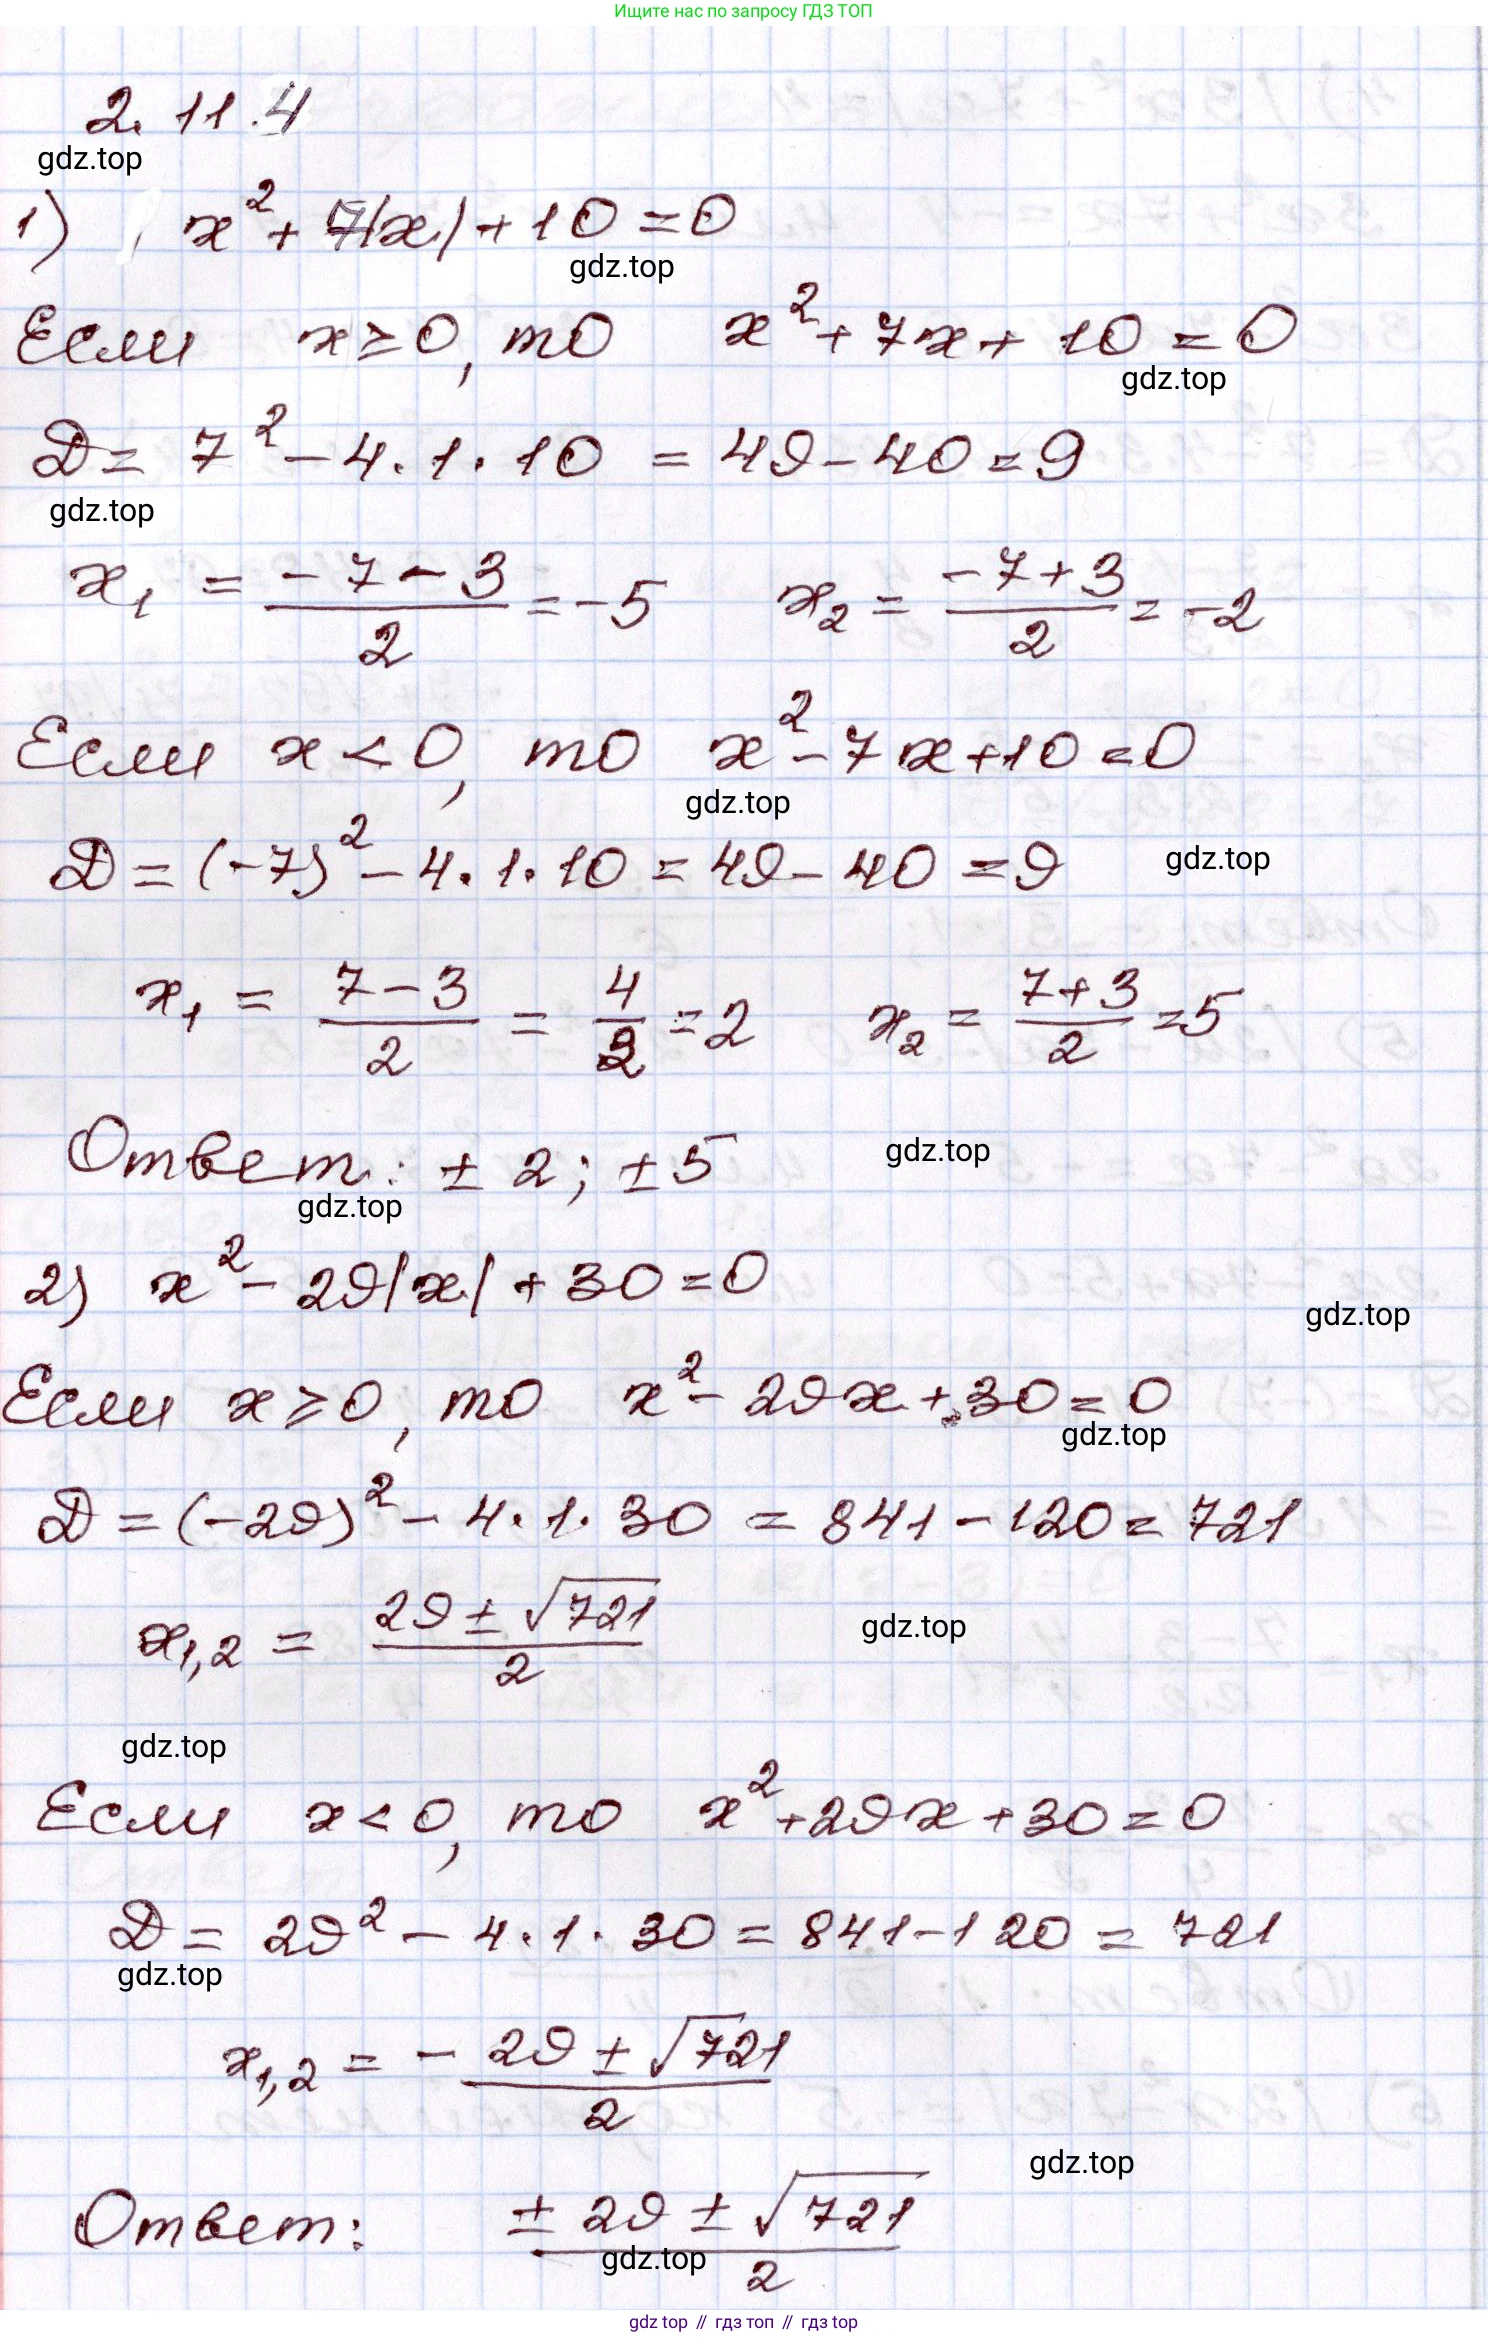 Ищите нас по запросу ГДЗ ТОП
2.11.4
gdz.top
1) x² + 7|x| + 10 = 0
gdz.top
Если x ≥ 0, то x² + 7x + 10 = 0
gdz.top
D = 7² - 4·1·10 = 49 - 40 = 9
gdz.top
x₁ = (-7-3)/2 = -5 x₂ = (-7+3)/2 = -2
Если x < 0, то x² - 7x + 10 = 0
gdz.top
D = (-7)² - 4·1·10 = 49 - 40 = 9
gdz.top
x₁ = (7-3)/2 = 4/2 = 2 x₂ = (7+3)/2 = 5
Ответ: ± 2; ± 5
gdz.top
gdz.top
2) x² - 29|x| + 30 = 0
gdz.top
Если x ≥ 0, то x² - 29x + 30 = 0
gdz.top
D = (-29)² - 4·1·30 = 841 - 120 = 721
x₁,₂ = (29 ± √721)/2
gdz.top
gdz.top
Если x < 0, то x² + 29x + 30 = 0
D = 29² - 4·1·30 = 841 - 120 = 721
gdz.top
x₁,₂ = - (29 ± √721)/2
gdz.top
Ответ: (± 29 ± √721)/2
gdz.top
gdz top // гдз топ // gdz top